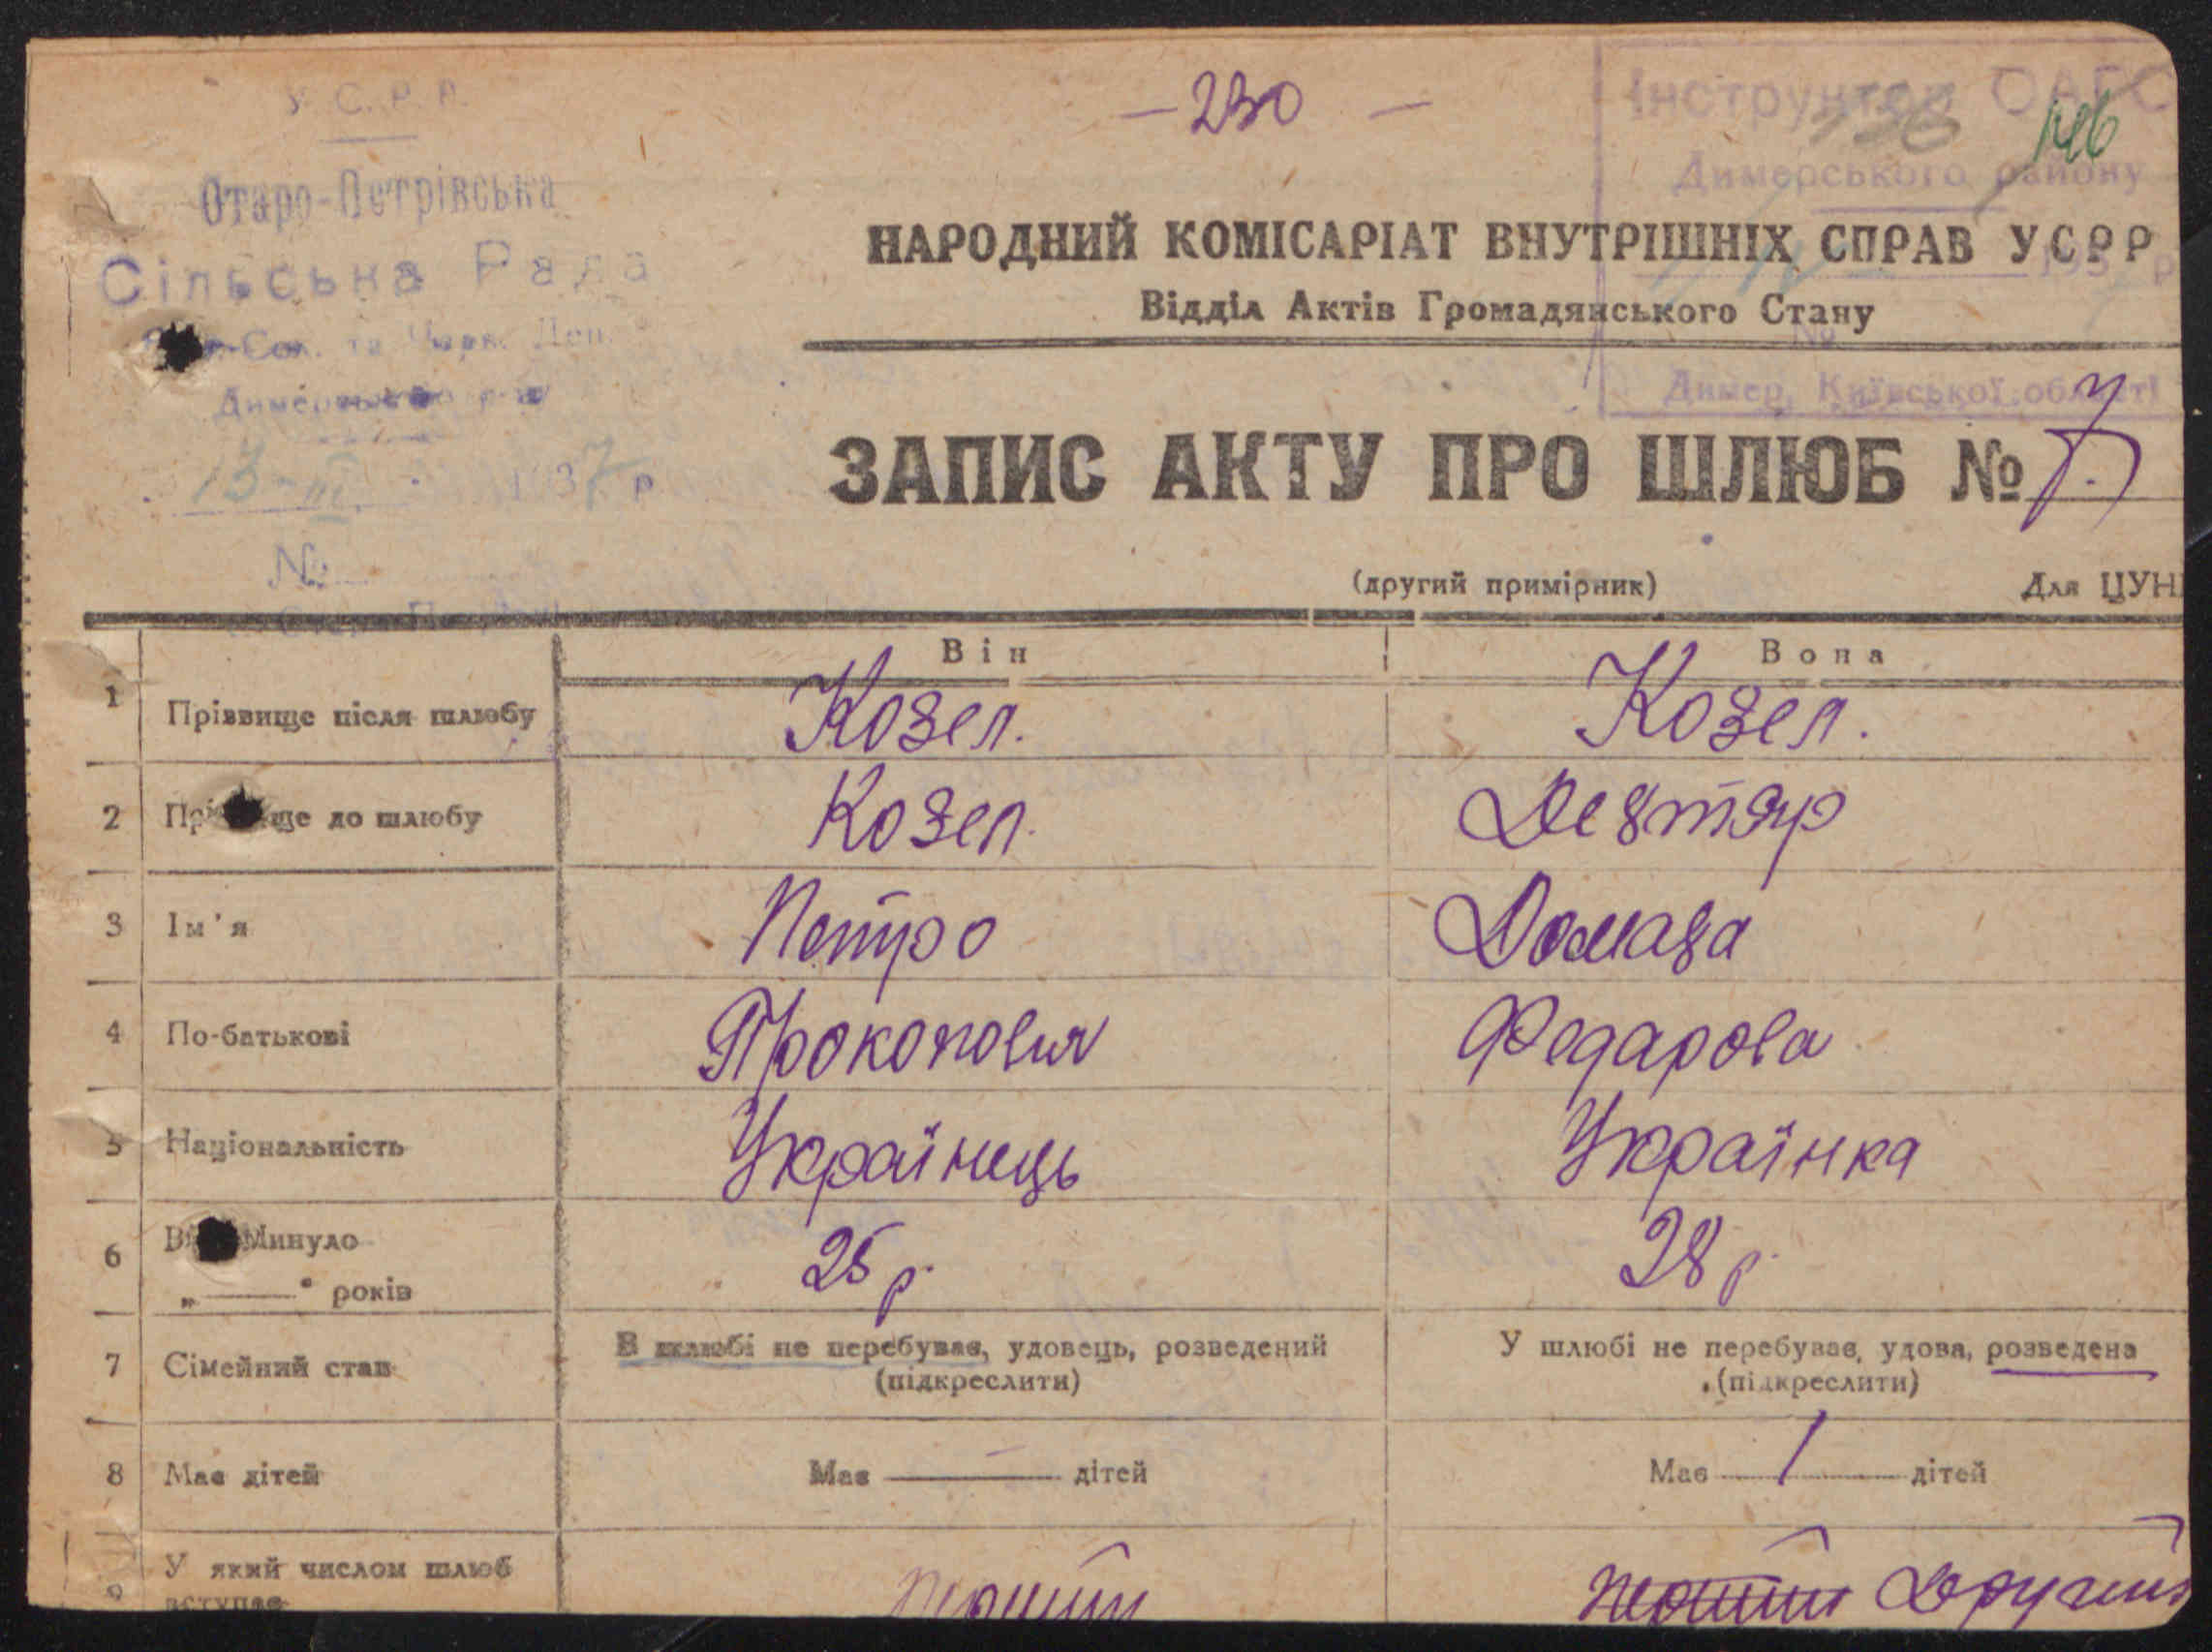 У.С.Р.Р.
Старо-Петрівська
Сільська Рада
та Черв. Деп.
13-III 1937 р.
№
— 230 —
Інструктор ОАГС
146
Димерського району
193 р
№
Димер, Київської області
НАРОДНИЙ КОМІСАРІАТ ВНУТРІШНІХ СПРАВ УСРР
Відділ Актів Громадянського Стану
ЗАПИС АКТУ ПРО ШЛЮБ №
(другий примірник) Для ЦУН
Він Вона
1 Прізвище після шлюбу Козел. Козел.
2 Прі ще до шлюбу Козел. Дегтяр
3 Ім'я Петро Домаха
4 По-батькові Прокопович Федарова
5 Національність Українець Українка
6 Ві Минуло „——" років 25 р. 28 р.
7 Сімейний стан В шлюбі не перебував, удовець, розведений У шлюбі не перебував, удова, розведена
(підкреслити) (підкреслити)
8 Має дітей Має — дітей Має 1 дітей
9 У який числом шлюб перший перший Другий
вступає